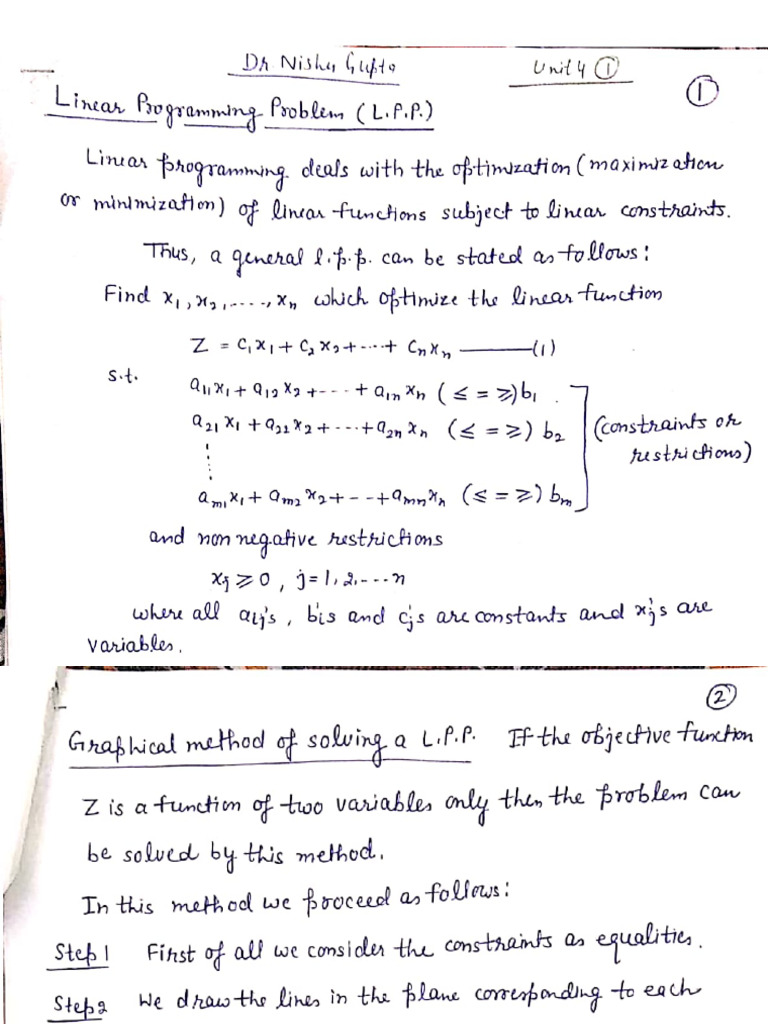 Dr Nishu Gupta
Unit 4 ①
①
Linear Programming Problem (L.P.P.)
Linear programming deals with the optimization (maximization
or minimization) of linear functions subject to linear constraints.
Thus, a general l.p.p. can be stated as follows:
Find x₁, x₂, ....., xₙ which optimize the linear function
Z = c₁x₁ + c₂x₂ + ....+ cₙxₙ ——— (1)
s.t.
a₁₁x₁ + a₁₂x₂ + --- + a₁ₙxₙ (≤ = ≥) b₁
a₂₁x₁ + a₂₂x₂ + ---- + a₂ₙxₙ (≤ = ≥) b₂
(constraints or
restrictions)
⋮
aₘ₁x₁ + aₘ₂x₂ + -- + aₘₙxₙ (≤ = ≥) bₘ
and non negative restrictions
xⱼ ≥ 0, j = 1, 2, --- n
where all aᵢⱼ's, bᵢs and cⱼs are constants and xⱼ's are
variables.
②
Graphical method of solving a L.P.P. If the objective function
Z is a function of two variables only then the problem can
be solved by this method.
In this method we proceed as follows:
Step 1 First of all we consider the constraints as equalities.
Step 2 We draw the lines in the plane corresponding to each